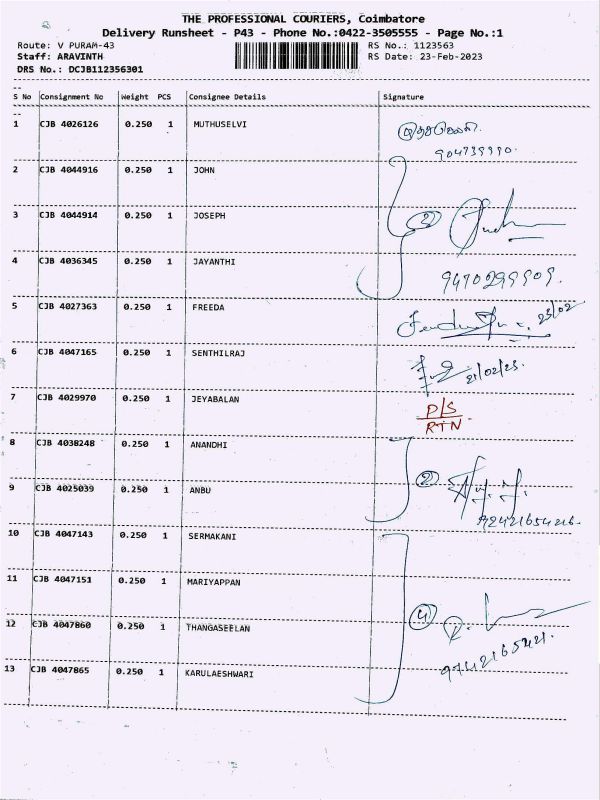 THE PROFESSIONAL COURIERS, Coimbatore
Delivery Runsheet - P43 - Phone No.:0422-3505555 - Page No.:1
Route: V PURAM-43 RS No.: 1123563
Staff: ARAVINTH RS Date: 23-Feb-2023
DRS No.: DCJB112356301
S No Consignment No Weight PCS Consignee Details Signature
1 CJB 4026126 0.250 1 MUTHUSELVI
2 CJB 4044916 0.250 1 JOHN
3 CJB 4044914 0.250 1 JOSEPH ②
4 CJB 4036345 0.250 1 JAYANTHI
5 CJB 4027363 0.250 1 FREEDA 23/02
6 CJB 4047165 0.250 1 SENTHILRAJ
7 CJB 4029970 0.250 1 JEYABALAN P/S
RTN
8 CJB 4038248 0.250 1 ANANDHI
9 CJB 4025039 0.250 1 ANBU ②
10 CJB 4047143 0.250 1 SERMAKANI
11 CJB 4047151 0.250 1 MARIYAPPAN
12 CJB 4047860 0.250 1 THANGASEELAN ④
13 CJB 4047865 0.250 1 KARULAESHWARI